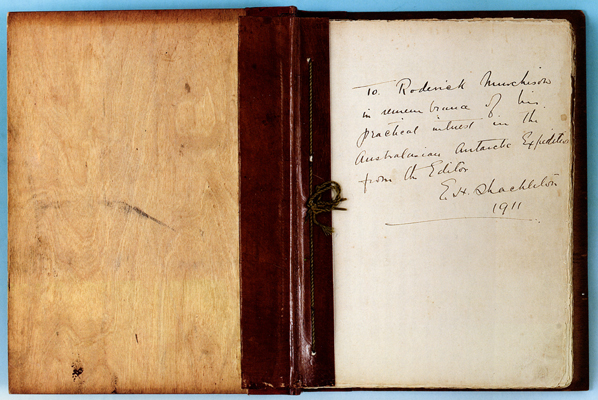 To Roderick Murchison
in remembrance of his
practical interest in the
Australasian Antarctic Expedition
from the Editor
E. H. Shackleton
1911